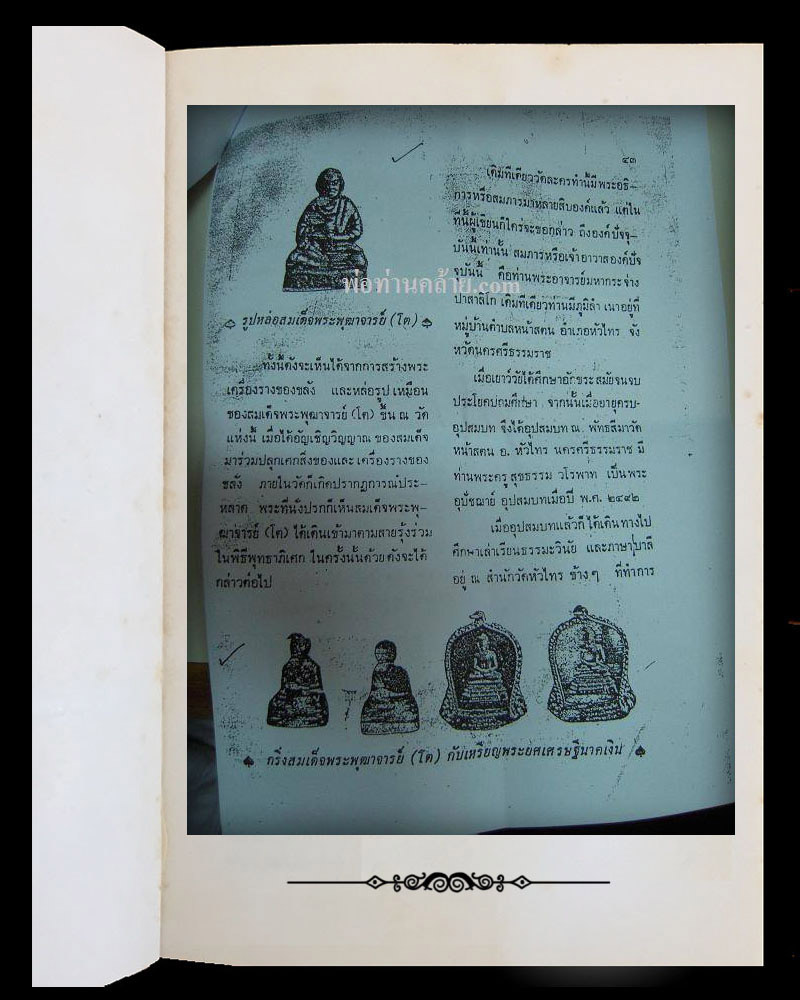 ๔๓
พ่อท่านคล้าย.com
รูปหล่อสมเด็จพระพุฒาจารย์ (โต)
ทั้งนี้ดังจะเห็นได้จากการสร้างพระ
เครื่องรางของขลัง และหล่อรูปเหมือน
ของสมเด็จพระพุฒาจารย์ (โต) ขึ้น ณ วัด
แห่งนี้ เมื่อได้อัญเชิญวิญญาณ ของสมเด็จ
มาร่วมปลุกเศกสิ่งของและเครื่องรางของ
ขลัง ภายในวัดก็เกิดปรากฏการณ์ประ-
หลาด พระที่นั่งปรกก็เห็นสมเด็จพระพุ-
ฒาจารย์ (โต) ได้เดินเข้ามาตามสายรุ้งร่วม
ในพิธีพุทธาภิเศก ในครั้งนั้นด้วย ดังจะได้
กล่าวต่อไป
เดิมทีเดียววัดละครทำนี้มีพระอธิ-
การหรือสมภารมาหลายสิบองค์แล้ว แต่ใน
ที่นี้ผู้เขียนก็ใคร่จะขอกล่าว ถึงองค์ปัจจุ-
บันนี้เท่านั้น สมภารหรือเจ้าอาวาสองค์ปัจ
จุบันนี้ คือท่านพระอาจารย์มหากระจ่าง
ปาสาลิโก เดิมทีเดียวท่านมีภูมิลำเนาอยู่ที่
หมู่บ้านตำบลหน้าสตน อำเภอหัวไทร จัง
หวัดนครศรีธรรมราช
เมื่อเยาว์วัยได้ศึกษาอักขระสมัยจนจบ
ประโยคปถมศึกษา จากนั้นเมื่ออายุครบ-
อุปสมบท จึงได้อุปสมบท ณ พัทธสีมาวัด
หน้าสตน อ. หัวไทร นครศรีธรรมราช มี
ท่านพระครูสุขธรรม วโรพาท เป็นพระ
อุปัชฌาย์ อุปสมบทเมื่อปี พ.ศ. ๒๔๙๒
เมื่ออุปสมบทแล้วก็ได้เดินทางไป
ศึกษาเล่าเรียนธรรมะวินัย และภาษาบาลี
อยู่ ณ สำนักวัดหัวไทร ข้างๆ ที่ทำการ
กริ่งสมเด็จพระพุฒาจารย์ (โต) กับเหรียญพระยศเศรษฐีนาคเงิน